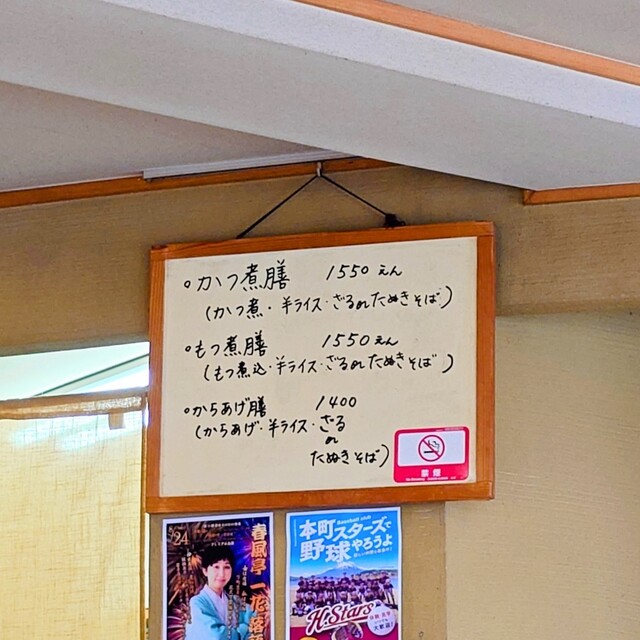 ○かつ煮膳 1550えん
(かつ煮・半ライス・ざるorたぬきそば)
○もつ煮膳 1550えん
(もつ煮込・半ライス・ざるorたぬきそば)
○からあげ膳 1400
(からあげ・半ライス・ざる
or
たぬきそば)
禁煙
8/24
春風亭一花
本町スターズで
野球やろうよ
H.Stars
大歓迎!